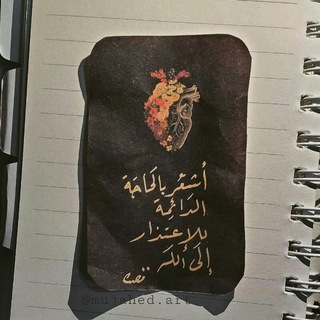 أشعر بالحاجة
الدائمة
للإعتذار
إلى الله
@mujahed.art